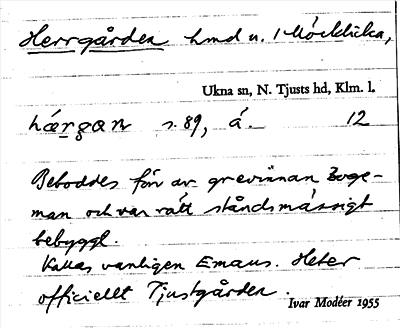 Herrgården hmd u. 1 Mörklicka,
Ukna sn, N. Tjusts hd, Klm. l.
hæ̀rgan s. 89, á. 12
Beboddes förr av grevinnan Boge-
man och var rätt ståndsmässigt
bebyggt.
Kallas vanligen Emaus. Heter
officiellt Tjustgården.
Ivar Modéer 1955